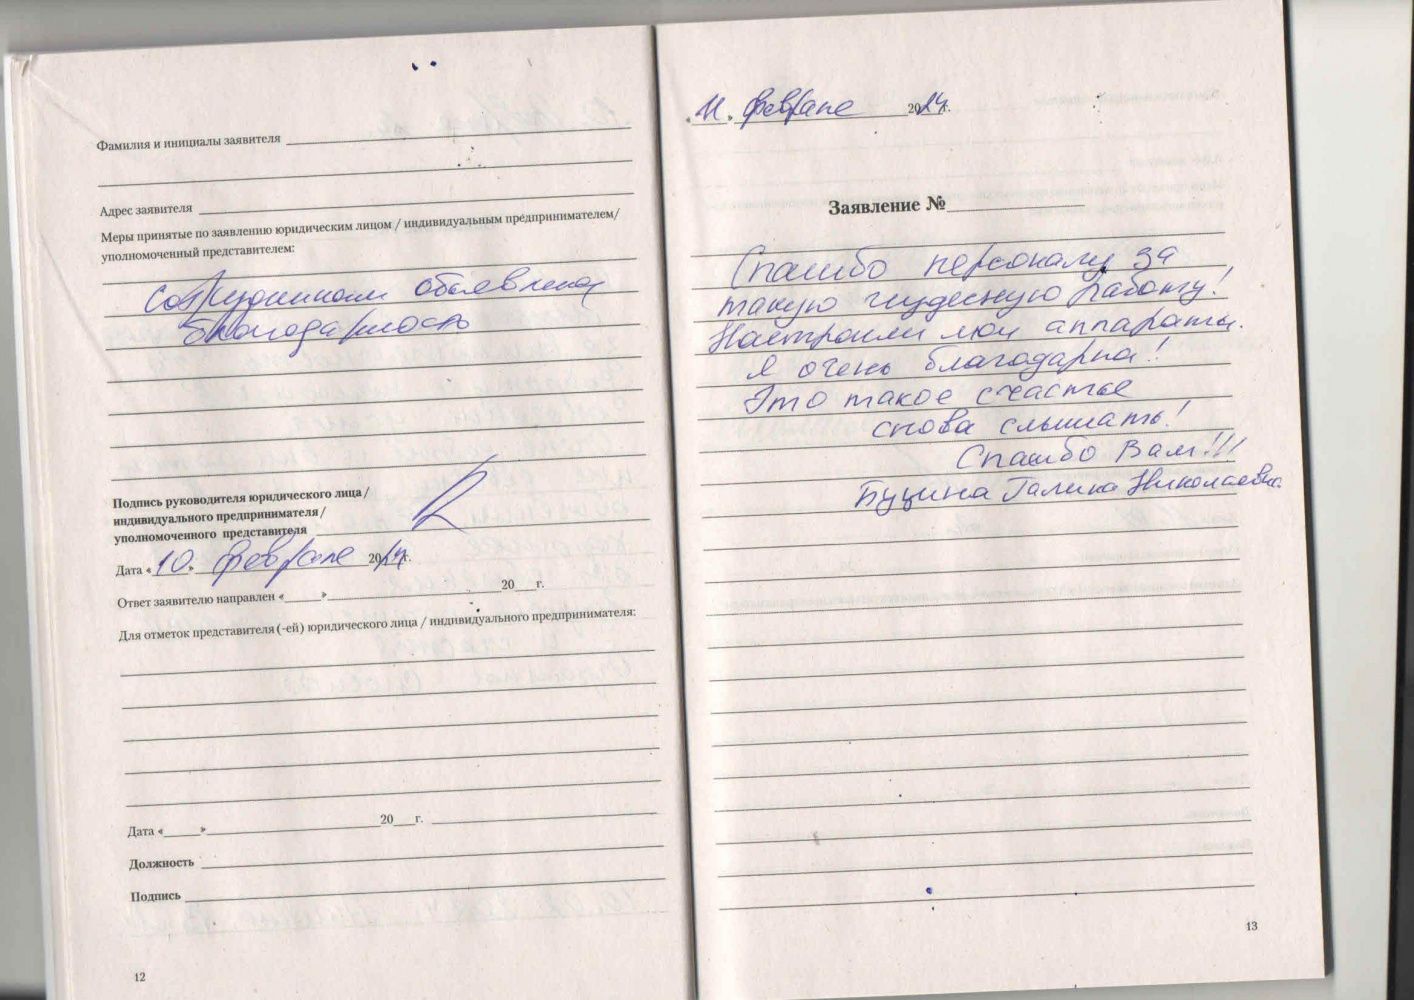 Фамилия и инициалы заявителя
Адрес заявителя
Меры принятые по заявлению юридическим лицом / индивидуальным предпринимателем/
уполномоченный представителем:
Сотрудникам объявлена
благодарность
Подпись руководителя юридического лица /
индивидуального предпринимателя /
уполномоченного представителя
Дата «10» февраля 2024г.
Ответ заявителю направлен «____»____20__г.
Для отметок представителя (-ей) юридического лица / индивидуального предпринимателя:
Дата «____»____20__г.
Должность
Подпись
12
«11» февраля 2024г.
Заявление №
Спасибо персоналу за
такую чудесную работу!
Настроили мои аппараты.
Я очень благодарна!
Это такое счастье
снова слышать!
Спасибо Вам!!!
Буцина Галина Николаевна.
13